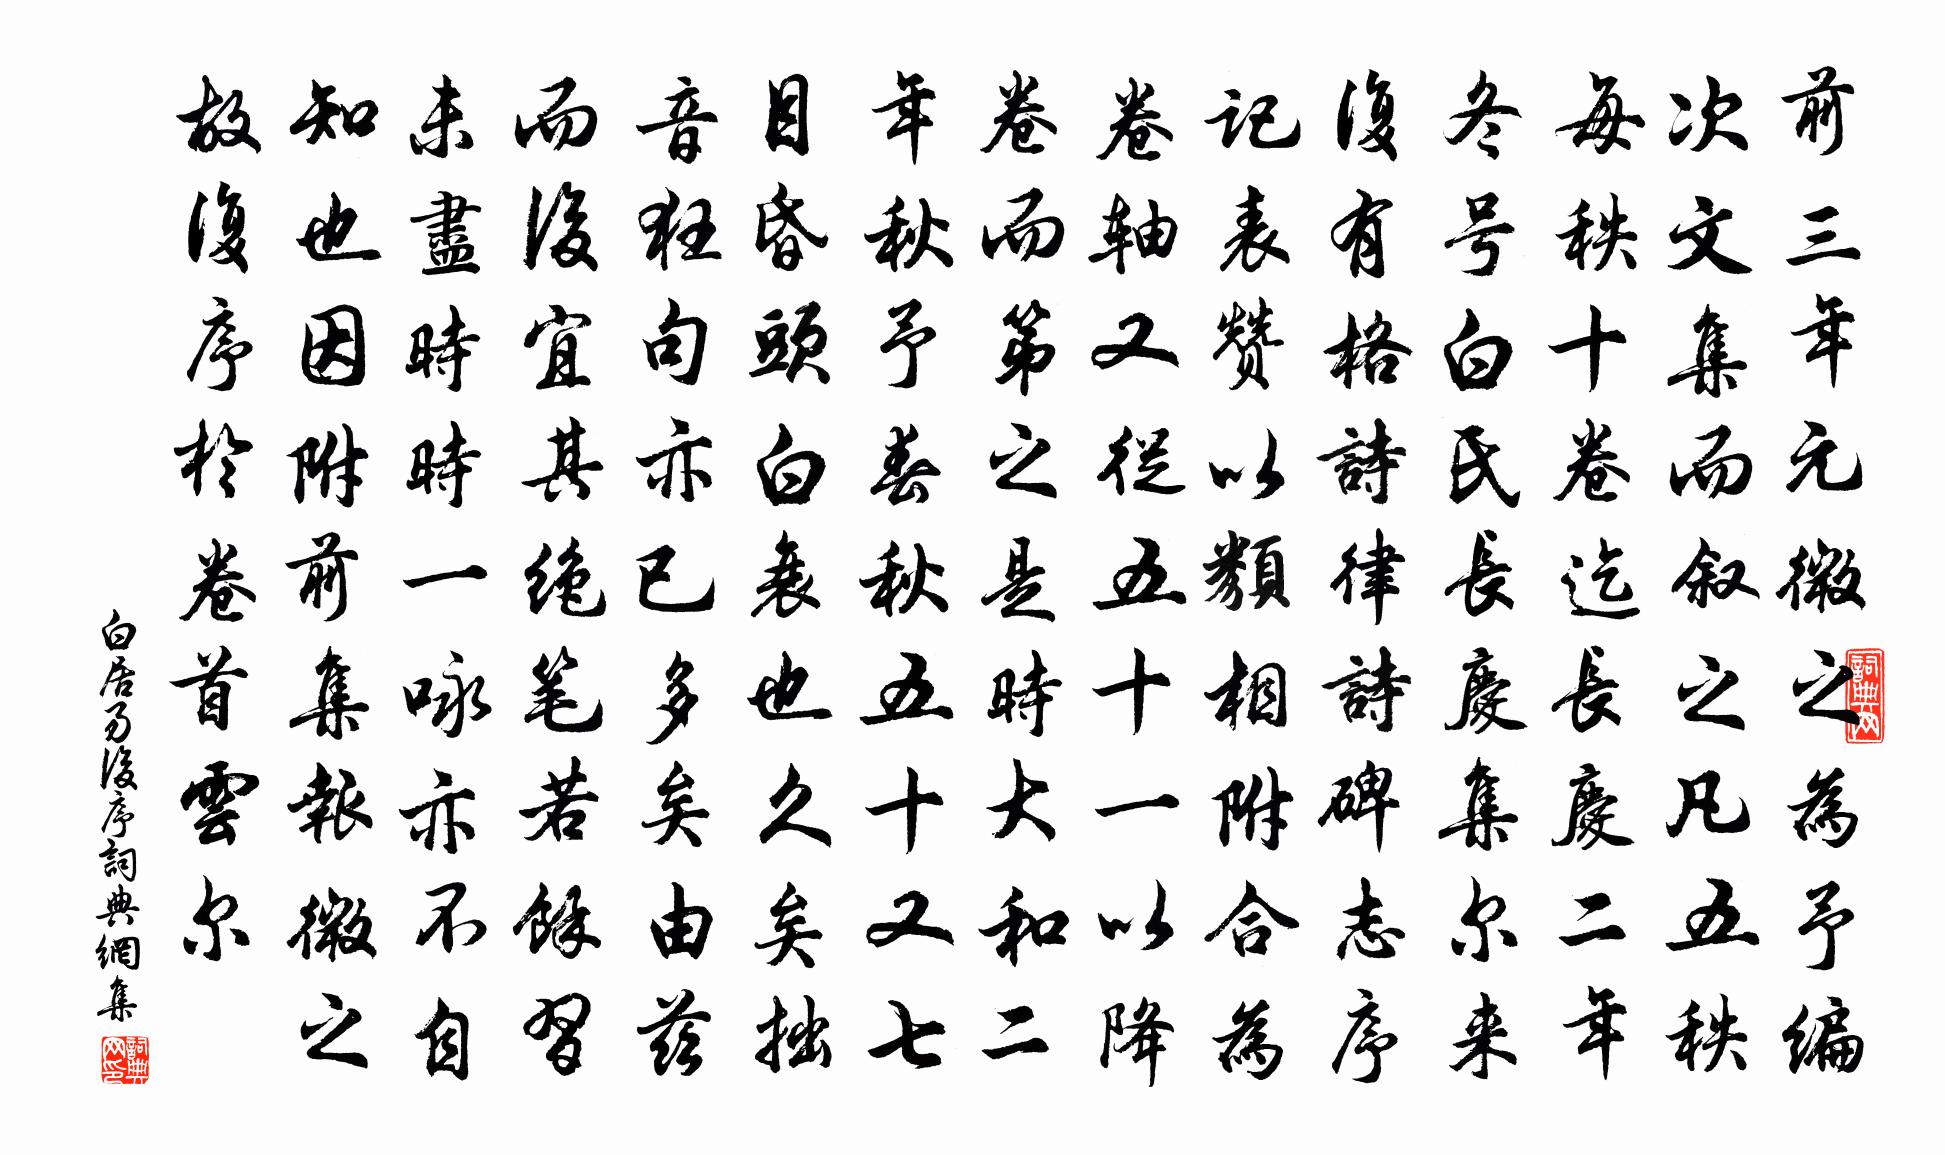 前三年元微之為予編
次文集而叙之凡五秩
每秩十卷迄長慶二年
冬号白氏長慶集尔来
復有格詩律詩碑志序
記表赞以類相附合為
卷軸又從五十一以降
卷而第之是時大和二
年秋予春秋五十又七
目昏頭白衰也久矣拙
音狂句亦已多矣由兹
而後宜其绝笔若餘習
未盡時時一咏亦不自
知也因附前集報微之
故復序於卷首雲尔
白居易後序詞典網集
詞典网
詞典网印